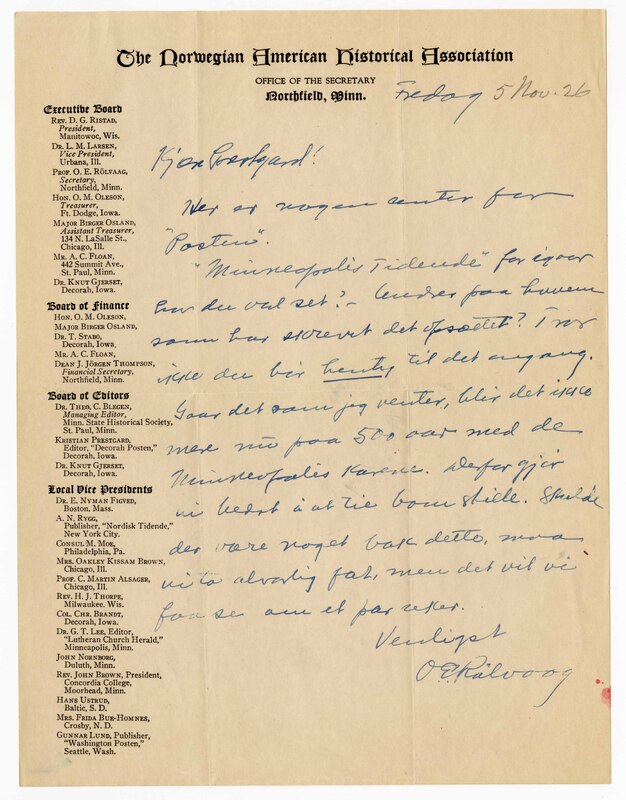 The Norwegian American Historical Association
OFFICE OF THE SECRETARY
Northfield, Minn.
Fredag 5 Nov. 26
Executive Board
REV. D. G. RISTAD,
President,
Manitowoc, Wis.
DR. L. M. LARSEN,
Vice President,
Urbana, Ill.
PROF. O. E. RÖLVAAG,
Secretary,
Northfield, Minn.
HON. O. M. OLESON,
Treasurer,
Ft. Dodge, Iowa.
MAJOR BIRGER OSLAND,
Assistant Treasurer,
134 N. LaSalle St.,
Chicago, Ill.
MR. A. C. FLOAN,
442 Summit Ave.,
St. Paul, Minn.
DR. KNUT GJERSET,
Decorah, Iowa.
Board of Finance
HON. O. M. OLESON,
MAJOR BIRGER OSLAND,
DR. T. STABO,
Decorah, Iowa,
MR. A. C. FLOAN,
DEAN J. JÖRGEN THOMPSON,
Financial Secretary,
Northfield, Minn.
Board of Editors
DR. THEO. C. BLEGEN,
Managing Editor,
Minn. State Historical Society,
St. Paul, Minn.
KRISTIAN PRESTGARD,
Editor, "Decorah Posten,"
Decorah, Iowa.
DR. KNUT GJERSET,
Decorah, Iowa.
Local Vice Presidents
DR. E. NYMAN FIGVED,
Boston, Mass.
A. N. RYGG,
Publisher, "Nordisk Tidende,"
New York City.
CONSUL M. MOE,
Philadelphia, Pa.
MRS. OAKLEY KISSAM BROWN,
Chicago, Ill.
PROF. C. MARTIN ALSAGER,
Chicago, Ill.
REV. H. J. THORPE,
Milwaukee. Wis.
COL. CHR. BRANDT,
Decorah, Iowa.
DR. G. T. LEE, Editor,
"Lutheran Church Herald,"
Minneapolis, Minn.
JOHN NORNBORG,
Duluth, Minn.
REV. JOHN BROWN, President,
Concordia College,
Moorhead, Minn.
HANS USTRUD,
Baltic, S. D.
MRS. FRIDA BUE-HOMNES,
Crosby, N. D.
GUNNAR LUND, Publisher,
"Washington Posten,"
Seattle, Wash.
Kjære Prestgard!
Her er nogen for
"Posten".
"Minneapolis Tidende" for igaar
har du vel set? – Undres paa hvem
som har skrevet det opsættet? Tror
ikke du bör til det engang.
Gaar det som jeg venter, blir det ikke
mere nu paa 500 aar med de
Minneapolis karene. Derfor gjör
vi bedst i at tie bom stille. Skulde
der være noget bak dette, maa
vi ta alvorlig fat, men det vil vi
faa se om et par uker.
Venligst
O E Rölvaag